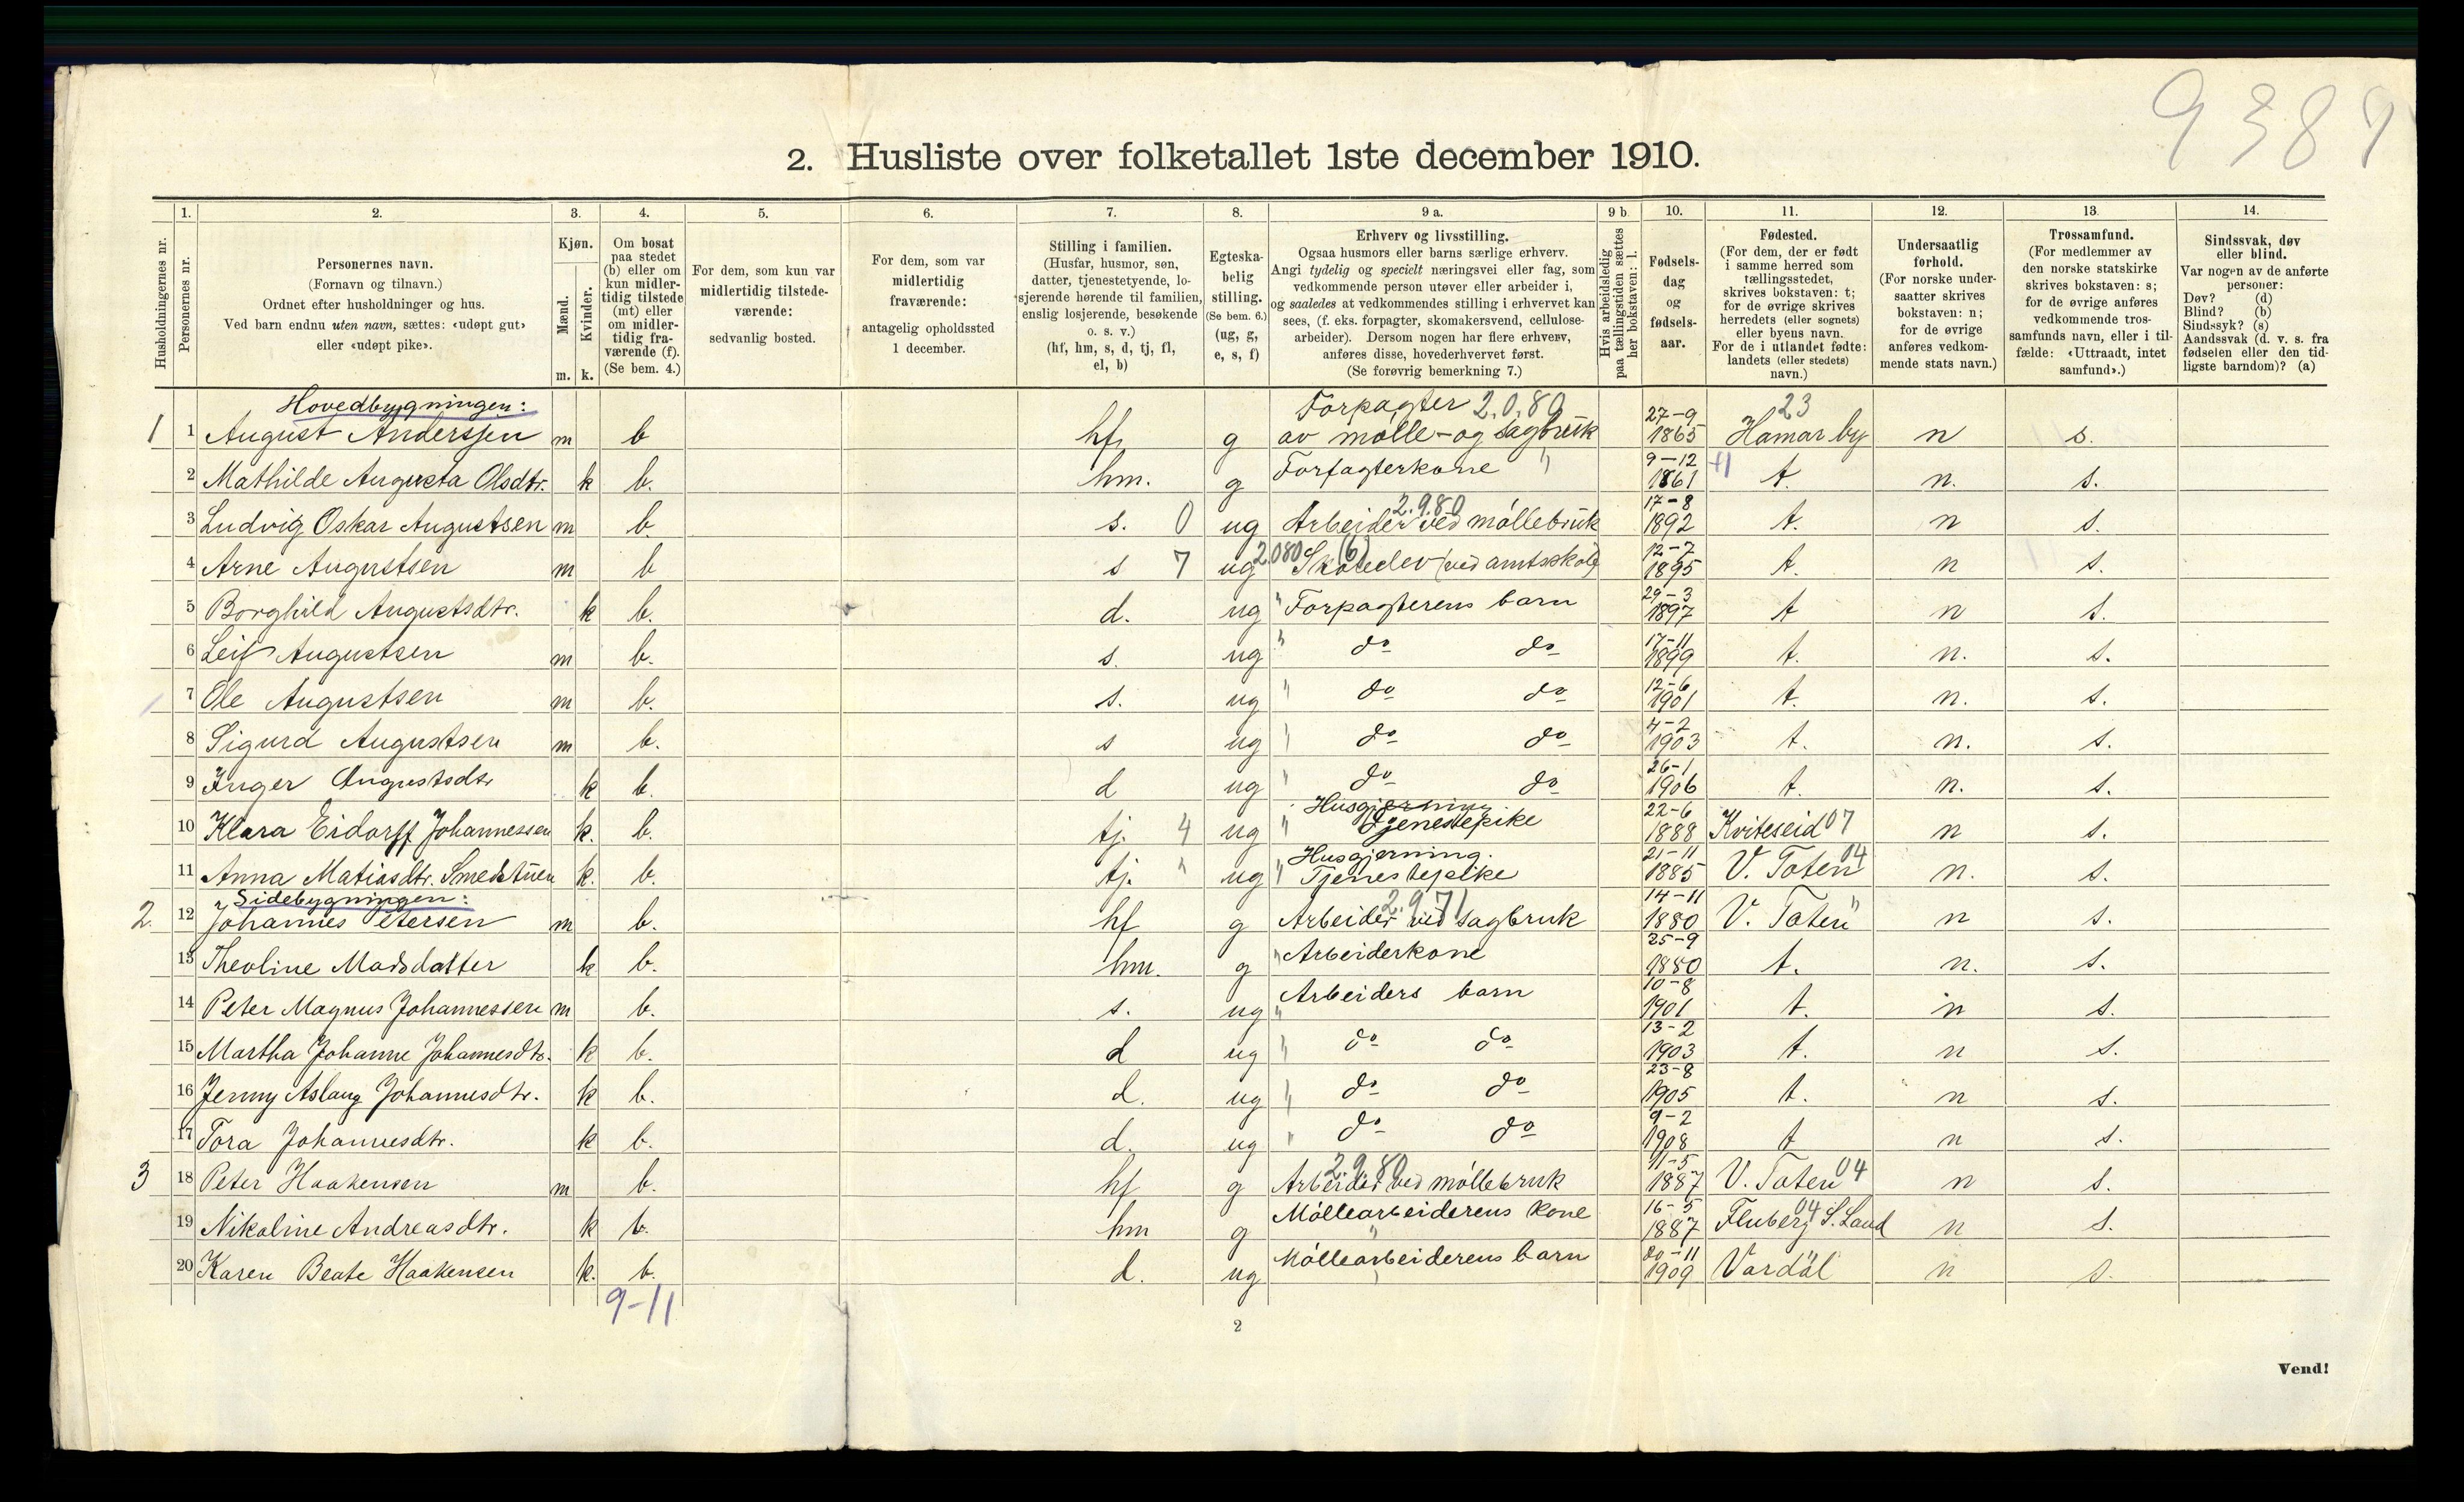 9387
2. Husliste over folketallet 1ste december 1910.
1. 2. 3. 4. 5. 6. 7. 8. 9 a. 9 b 10. 11. 12. 13. 14.
Husholdningernes nr.
Personernes nr.
Personernes navn.
(Fornavn og tilnavn.)
Ordnet efter husholdninger og hus.
Ved barn endnu uten navn, sættes: «udøpt gut»
eller «udøpt pike».
Kjøn.
Mænd.
Kvinder.
m. k.
Om bosat
paa stedet
(b) eller om
kun midler-
tidig tilstede
(mt) eller
om midler-
tidig fra-
værende (f).
(Se bem. 4.)
For dem, som kun var
midlertidig tilstede-
værende:
sedvanlig bosted.
For dem, som var
midlertidig
fraværende:
antagelig opholdssted
1 december.
Stilling i familien.
(Husfar, husmor, søn,
datter, tjenestetyende, lo-
sjerende hørende til familien,
enslig losjerende, besøkende
o. s. v.)
(hf, hm, s, d, tj, fl,
el, b)
Egteska-
belig
stilling.
(Se bem. 6.)
(ug, g,
e, s, f)
Erhverv og livsstilling.
Ogsaa husmors eller barns særlige erhverv.
Angi tydelig og specielt næringsvei eller fag, som
vedkommende person utøver eller arbeider i,
og saaledes at vedkommendes stilling i erhvervet kan
sees, (f. eks. forpagter, skomakersvend, cellulose-
arbeider). Dersom nogen har flere erhverv,
anføres disse, hovederhvervet først.
(Se forøvrig bemerkning 7.)
Hvis arbeidsledig
paa tællingstiden sættes
her bokstaven: l.
Fødsels-
dag
og
fødsels-
aar.
Fødested.
(For dem, der er født
i samme herred som
tællingsstedet,
skrives bokstaven: t;
for de øvrige skrives
herredets (eller sognets)
eller byens navn.
For de i utlandet fødte:
landets (eller stedets)
navn.)
Undersaatlig
forhold.
(For norske under-
saatter skrives
bokstaven: n;
for de øvrige
anføres vedkom-
mende stats navn.)
Trossamfund.
(For medlemmer av
den norske statskirke
skrives bokstaven: s;
for de øvrige anføres
vedkommende tros-
samfunds navn, eller i til-
fælde: «Uttraadt, intet
samfund».)
Sindssvak, døv
eller blind.
Var nogen av de anførte
personer:
Døv? (d)
Blind? (b)
Sindssyk? (s)
Aandssvak (d. v. s. fra
fødselen eller den tid-
ligste barndom)? (a)
Hovedbygningen: Forpagter 2.0.80 27-9 23
1 1 August Anderssen m b hf g av mølle- og sagbruk 1865 Hamar by n s.
9-12
2 Mathilde Augusta Olsdtr. k b. hm. g Forpagterkone " 1861 t. n. s.
2.9.80 17-8
3 Ludvig Oskar Augustsen m b. s. 0 ug Arbeider ved møllebruk 1892 t. n s.
2.080 (6) 12-7
4 Arne Augustsen m b s 7 ug Skoleelev (ved amtsskole) 1895 t. n s.
29-3
5 Borghild Augustsdtr. k b. d. ug " Forpagterens barn 1897 t n s.
17-11
6 Leif Augustsen m b. s. ug " do do 1899 t. n. s.
12-6
7 Ole Augustsen m b. s. ug " do do 1901 t. n. s.
4-2
8 Sigurd Augustsen m b. s ug " do do 1903 t. n. s.
26-1
9 Inger Augustsdtr k b. d ug " do do 1906 t. n. s.
Husgjerning 22-6
10 Klara Eidorff Johannessen k. b. tj. 4 ug " Tjenestepike 1888 Kviteseid 07 n s.
Husgjerning. 21-11 04
11 Anna Matiasdtr. Smedstuen k. b. tj. " ug " Tjenestepike 1885 V. Toten n. s.
Sidebygningen: 2.9.71 14-11
2. 12 Johannes Petersen m b. hf g Arbeider ved sagbruk 1880 V. Toten " n s.
25-9
13 Theoline Madsdatter k b. hm. g " Arbeiderkone 1880 t. n. s.
10-8
14 Peter Magnus Johannessen m b. s. ug " Arbeiders barn 1901 t. n s.
13-2
15 Martha Johanne Johannesdtr. k b. d ug " do do 1903 t. n s.
23-8
16 Jenny Aslaug Johannesdtr. k b. d. ug " do do 1905 t. n s.
9-2
17 Tora Johannesdtr. k b. d. ug " do do 1908 t n s.
2.9.80 11-5 04
3 18 Peter Haakensen m b. hf g Arbeider ved møllebruk 1887 V. Toten n s.
16-5 04
19 Nikoline Andreasdtr. k b. hm g Møllearbeiderens kone " 1887 Fluberg S. Land n s.
20-11 "
20 Karen Beate Haakensen k. b. d. ug Møllearbeiderens barn " 1909 Vardal n s.
9-11
2
Vend!